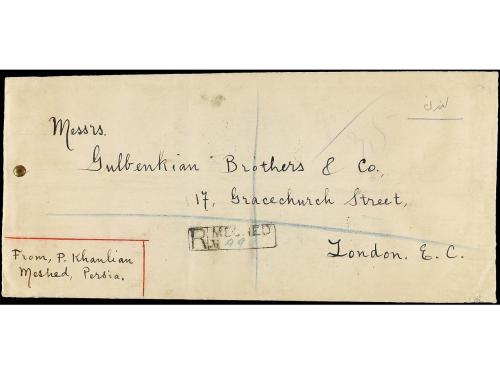 لندن
Messrs.
Gulbenkian Brothers & Co.,
17, Gracechurch Street,
R MESHED
London. E. C.
From, P. Khanlian
Meshed, Persia.